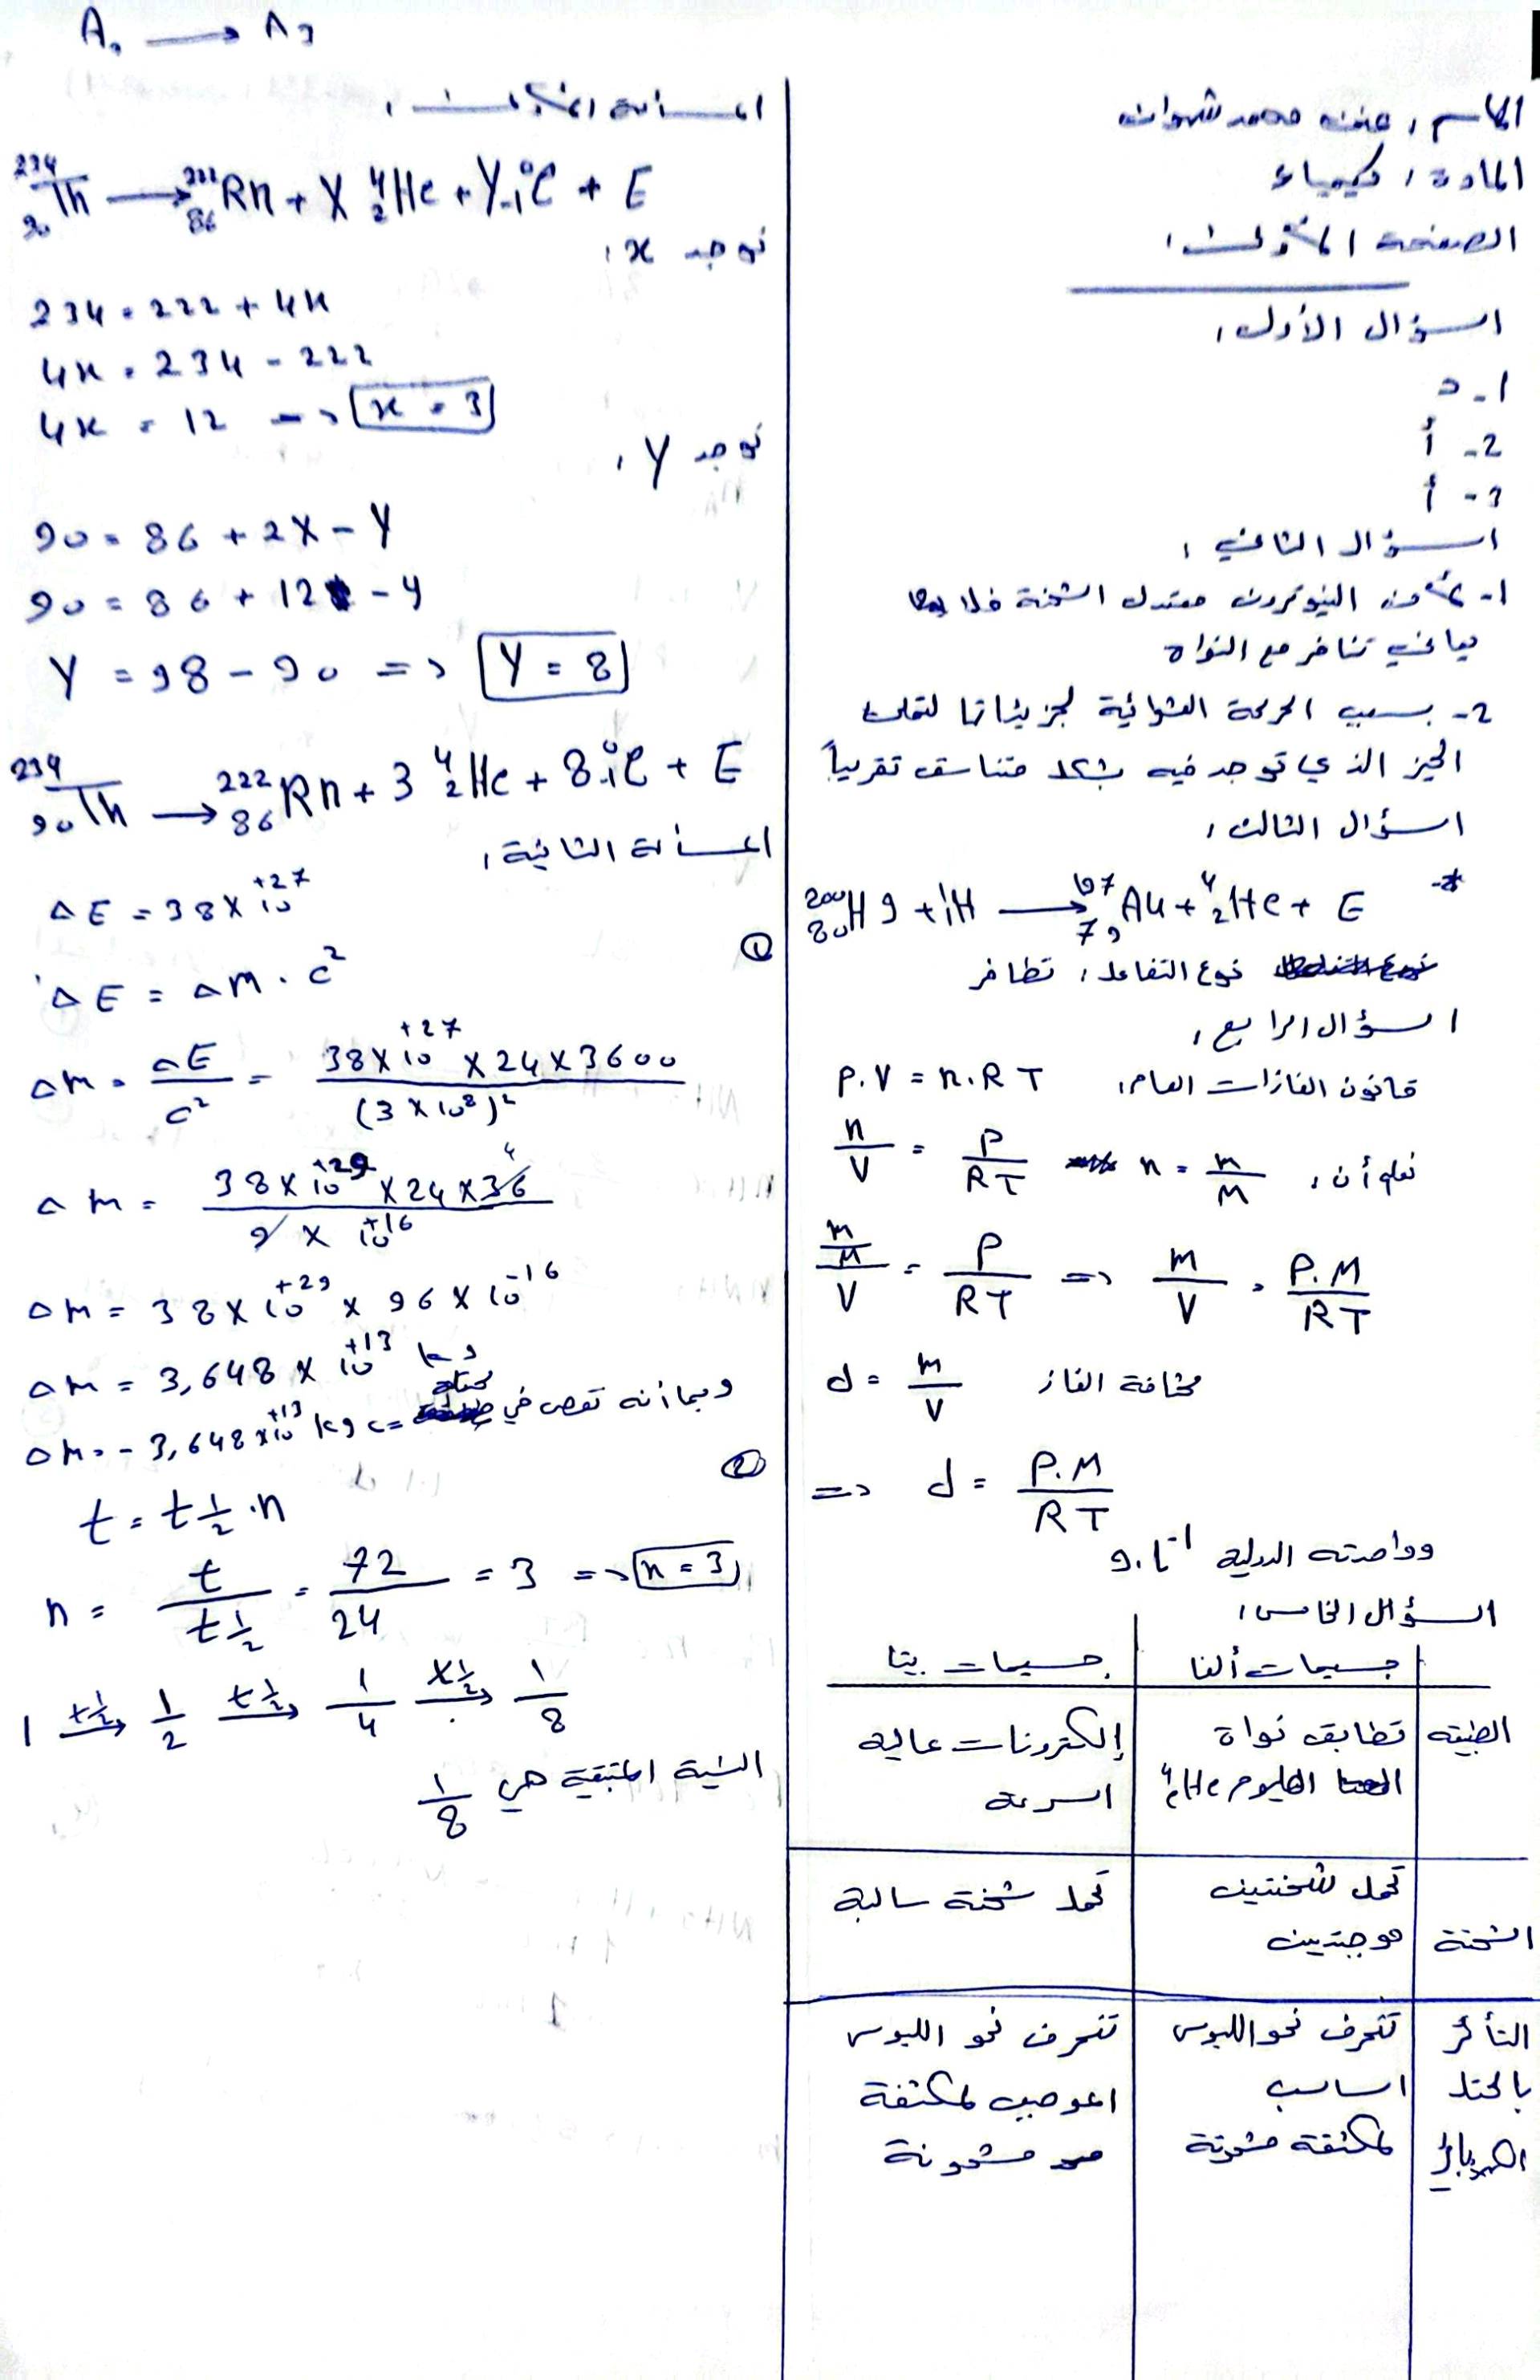 الاسم: محمد شهوان
المادة: كيمياء
الصفحة الأولى:
السؤال الأول:
1- د
2- أ
3- أ
السؤال الثاني:
1- لأن النيوترون معتدل الشحنة فلا
يعاني تنافر مع النواة
2- بسبب الحركة العشوائية لجزيئاتها لتملأ
الحيز الذي توجد فيه بشكل متناسق تقريباً
السؤال الثالث:
*- ²⁰⁰₈₀Hg + ¹₁H ⟶ ¹⁹⁷₇₉Au + ⁴₂He + E
نوع التفاعل: تطافر
السؤال الرابع:
قانون الغازات العام: P.V = n.R T
n/V = P/RT نعلم أن: n = m/M
(m/M)/V = P/RT => m/V = P.M/RT
d = m/V كثافة الغاز
=> d = P.M/RT
وواحدته الدولية g.l⁻¹
السؤال الخامس:
جسيمات ألفا | جسيمات بيتا
الطبيعة | تطابق نواة الهليوم ⁴₂He | إلكترونات عالية السرعة
الشحنة | تحمل شحنتين موجبتين | تحمل شحنة سالبة
التأثر بالحقل الكهربائي | تنحرف نحو اللبوس السالب لمكثفة مشحونة | تنحرف نحو اللبوس الموجب لمكثفة مشحونة
المسألة الأولى:
²³⁴₉₀Th ⟶ ²²²₈₆Rn + X ⁴₂He + Y ⁰₋₁e + E
نوجد x:
234 = 222 + 4x
4x = 234 - 222
4x = 12 => x = 3
نوجد Y:
90 = 86 + 2X - Y
90 = 86 + 12 - y
Y = 98 - 90 => Y = 8
²³⁴₉₀Th ⟶ ²²²₈₆Rn + 3 ⁴₂He + 8 ⁰₋₁e + E
المسألة الثانية:
ΔE = 38 × 10⁺²⁷
①
ΔE = Δm . c²
Δm = ΔE/c² = 38×10⁺²⁷ × 24 × 3600 / (3 × 10⁸)²
Δm = 38×10⁺²⁹ × 24 × 36 / 9 × 10⁺¹⁶
Δm = 38 × 10⁺²⁹ × 96 × 10⁻¹⁶
Δm = 3,648 × 10⁺¹³ kg
وبما أنه نقص في كتلة => Δm = - 3,648 × 10⁺¹³ kg
②
t = t½ . n
n = t/t½ = 72/24 = 3 => n = 3
1 t½⟶ 1/2 t½⟶ 1/4 t½⟶ 1/8
النسبة المتبقية هي 1/8